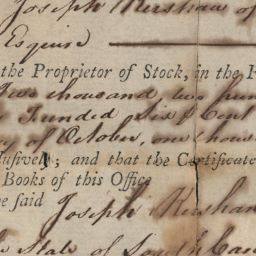 Joseph Kershaw of
Esquire
the Proprietor of Stock, in the
Two thousand, two hun
Funded Six ⅌ Cent
of October, one thous
lusively; and that the Certificate
Books of this Office
e said Joseph Kershaw
State of South Caro